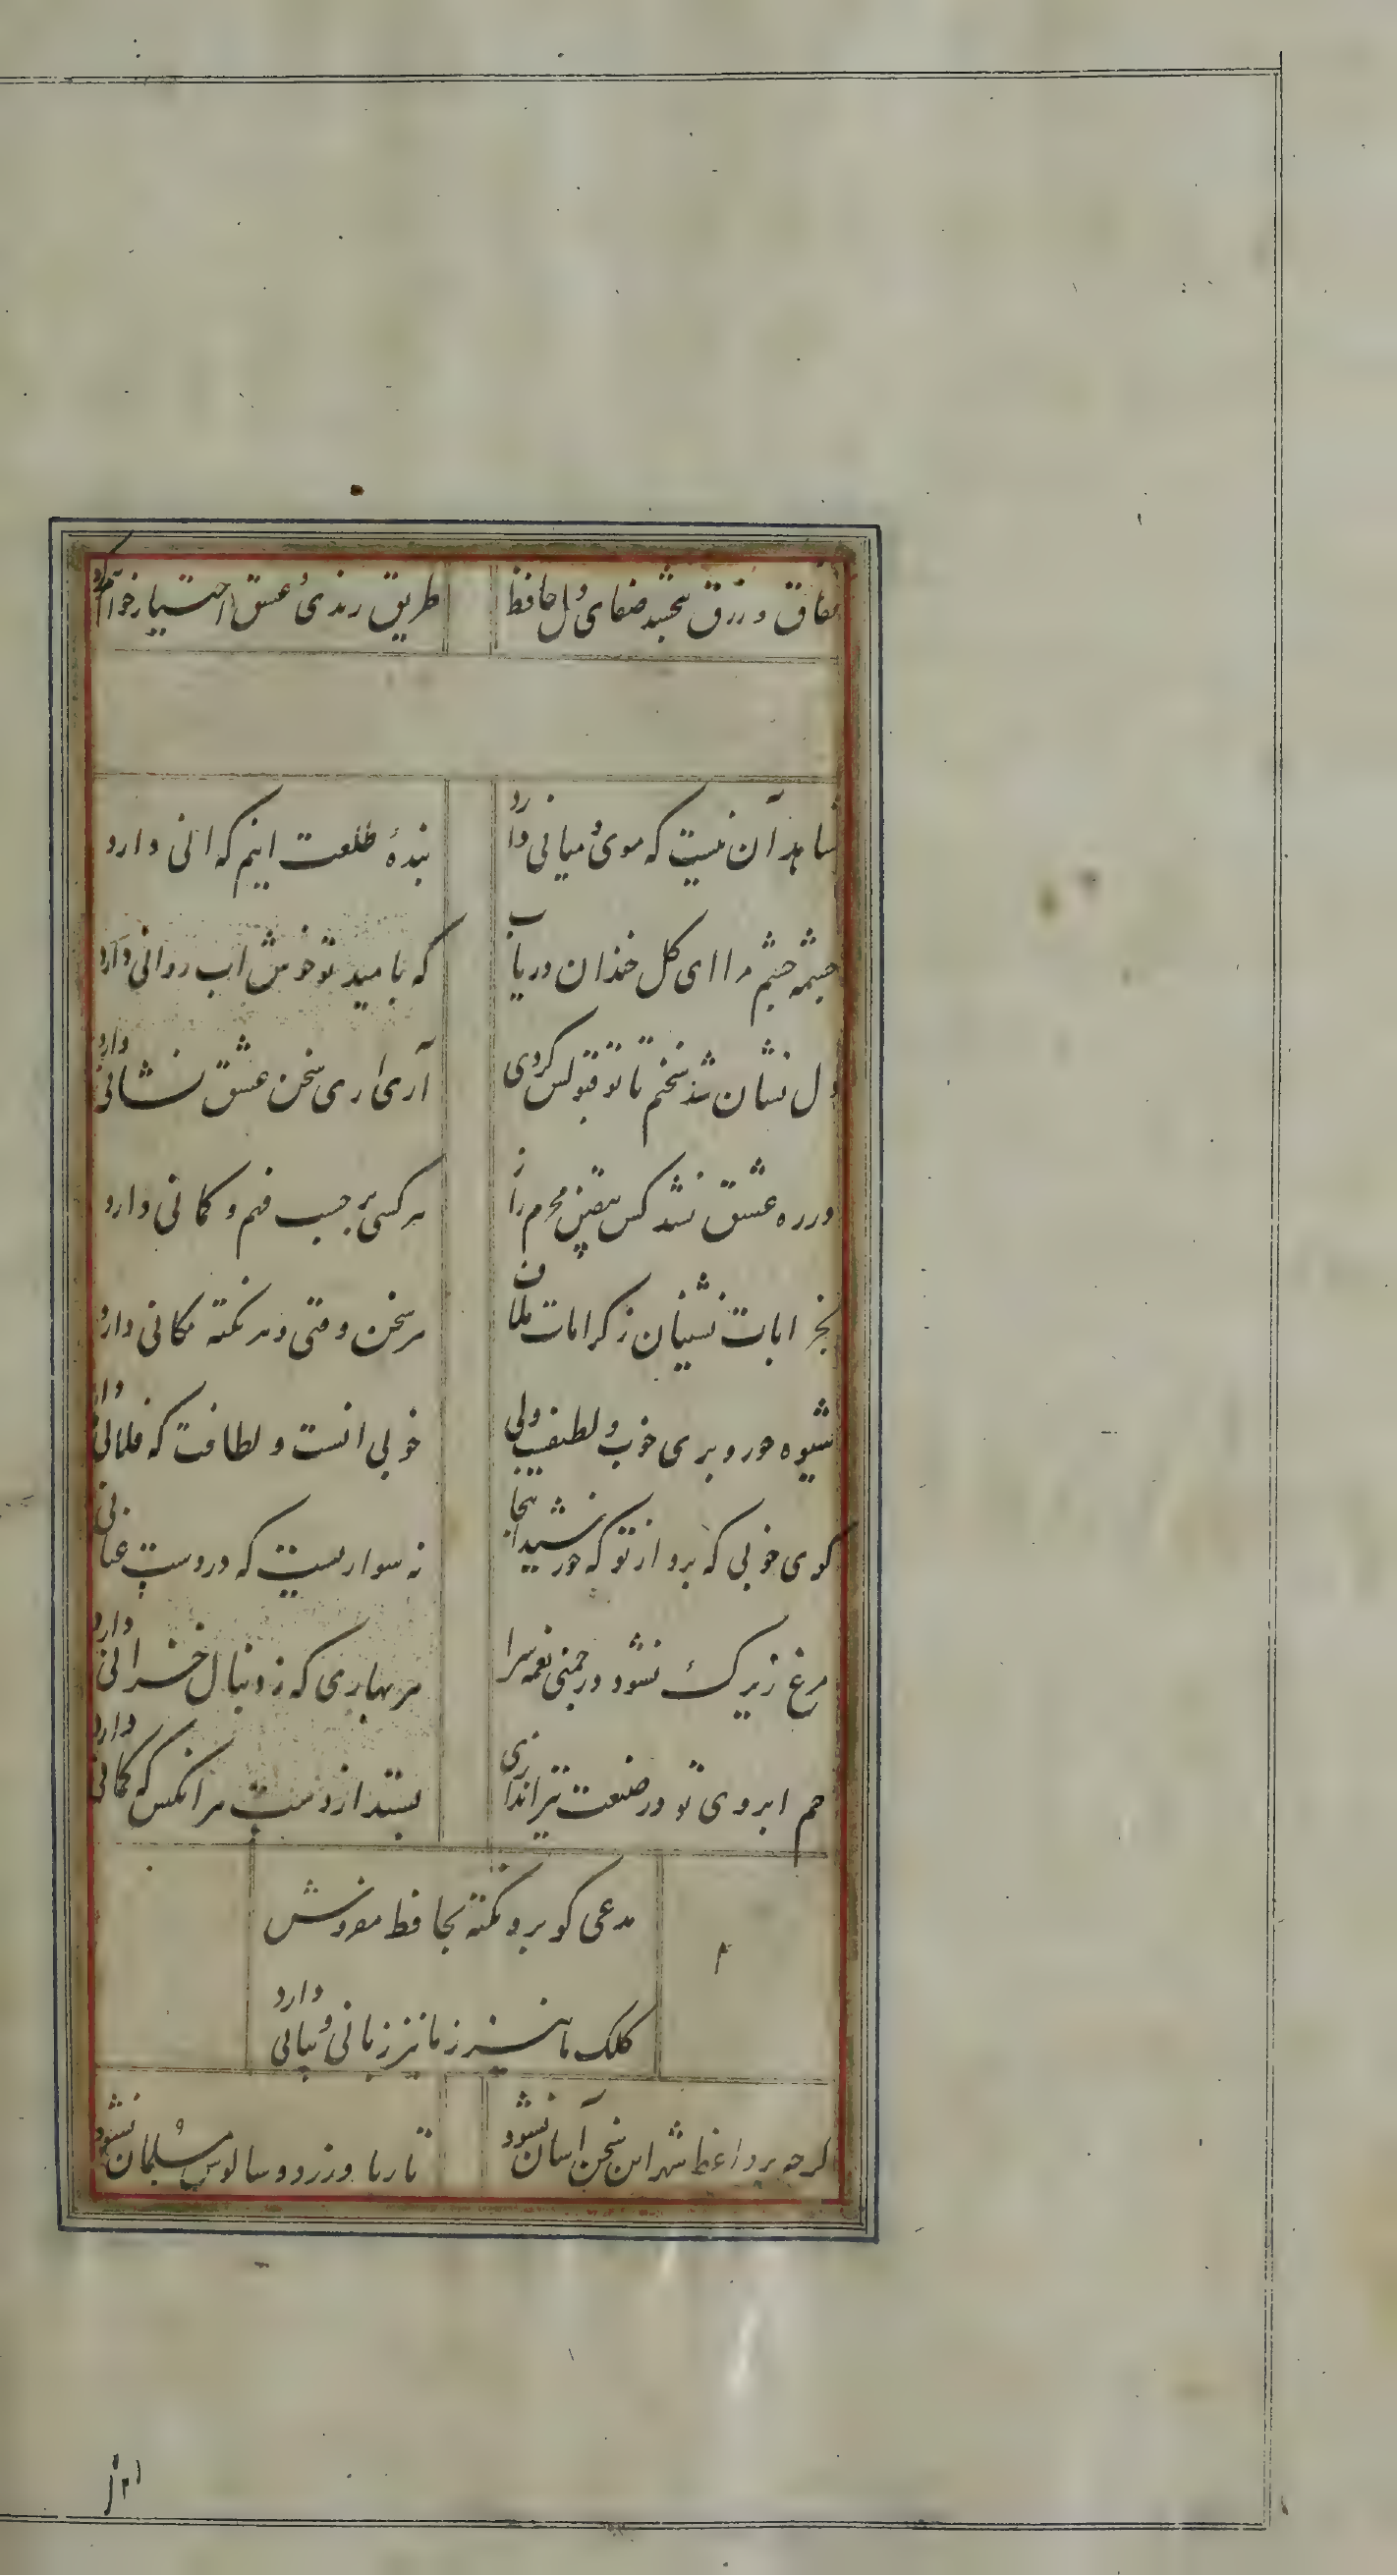 نفاق و زرق نبخشد صفای دل حافظ طریق رندی و عشق اختیار خواهم کرد
شاهد آن نیست که موی و میانی دارد بندهٔ طلعت اینم که آنی دارد
چشمه چشم مرا ای گل خندان دریاب که بامید تو خوش اب روانی دارد
دل نشان شد سخنم تا تو قبولش کردی آری اری سخن عشق نشانی دارد
در ره عشق نشد کس بیقین محرم راز هر کسی بر حسب فهم و کمانی دارد
بخرابات نشینان ز کرامات ملان هر سخن وقتی و هر نکته مکانی دارد
شیوه حور و بری خوب و لطیف ولی خوبی انست و لطافت که فلانی دارد
کوی خوبی که برد از تو که خورشید انجا نه سواریست که در دست عنانی
مرغ زیرک نشود در چمنی نغمه سرا هر بهاری که ز دنبال خزانی دارد
خم ابروی تو در صنعت تیراندازی بستد از دست هر انکس که کمانی دارد
مدعی کو برو نکته بحافظ مفروش
کلک ما نیز زبانی و بیانی دارد
کرچه بر واعظ شهر این سخن آسان نشود تا ریا ورزد و سالوس مسلمان نشود